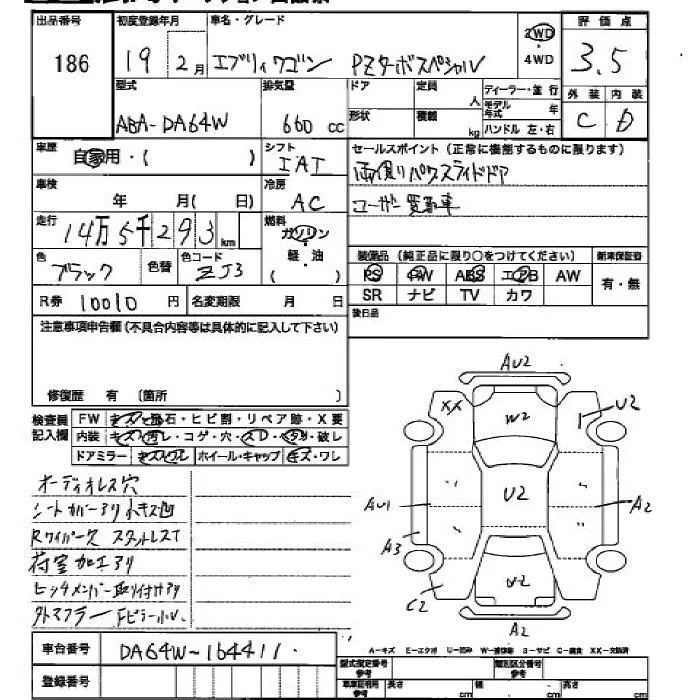 出品番号 初度登録年月 車名・グレード 2WD 評価点
186 19 2月 エブリィワゴン PZターボスペシャル 4WD 3.5
型式 排気量 ドア 定員 人 ディーラー・並行 外装 内装
ABA-DA64W 660 cc 形状 積載 kg モデル年式 年 ハンドル 左・右 C D
車歴 シフト セールスポイント(正常に機能するものに限ります)
自家用・( ) IAT 両側パワースライドドア
車検 冷房 ユーザー買取車
年 月( 日) AC
走行 燃料
14万5千293km ガソリン
色 色替 色コード 軽・油 装備品(純正品に限り○をつけてください) 新車保証書
ブラック ZJ3 ( ) PS PW ABS エアB AW 有・無
R券 10010円 名変期限 月 日 SR ナビ TV カワ
注意事項申告欄(不具合内容等は具体的に記入して下さい) 後日品
修復歴 有 〔箇所 〕
検査員 FW キズ・飛石・ヒビ割・リペア跡・X要
記入欄 内装 キズ・汚レ・コゲ・穴・スレ・ヘタリ・破レ
ドアミラー キズ・ワレ ホイール・キャップ キズ・ワレ
オーディオレス穴
シートカバーアリ 小キズ凹
Rワイパーウ スタットレスT
荷室加工アリ
ヒッチメンバー取り付けアリ
外マフラー Fピラー小U
AU2
XX
W2
U2
U2
AU1
A2
A3
U2
C2
A2
車台番号 DA64W-164411
登録番号
A-キズ E-エクボ U-凹み W-補修跡 S-サビ C-腐食 XX-交換済
型式指定番号 参考 類別区分番号 参考
車庫証明用 参考 長さ cm 幅 cm 高さ cm